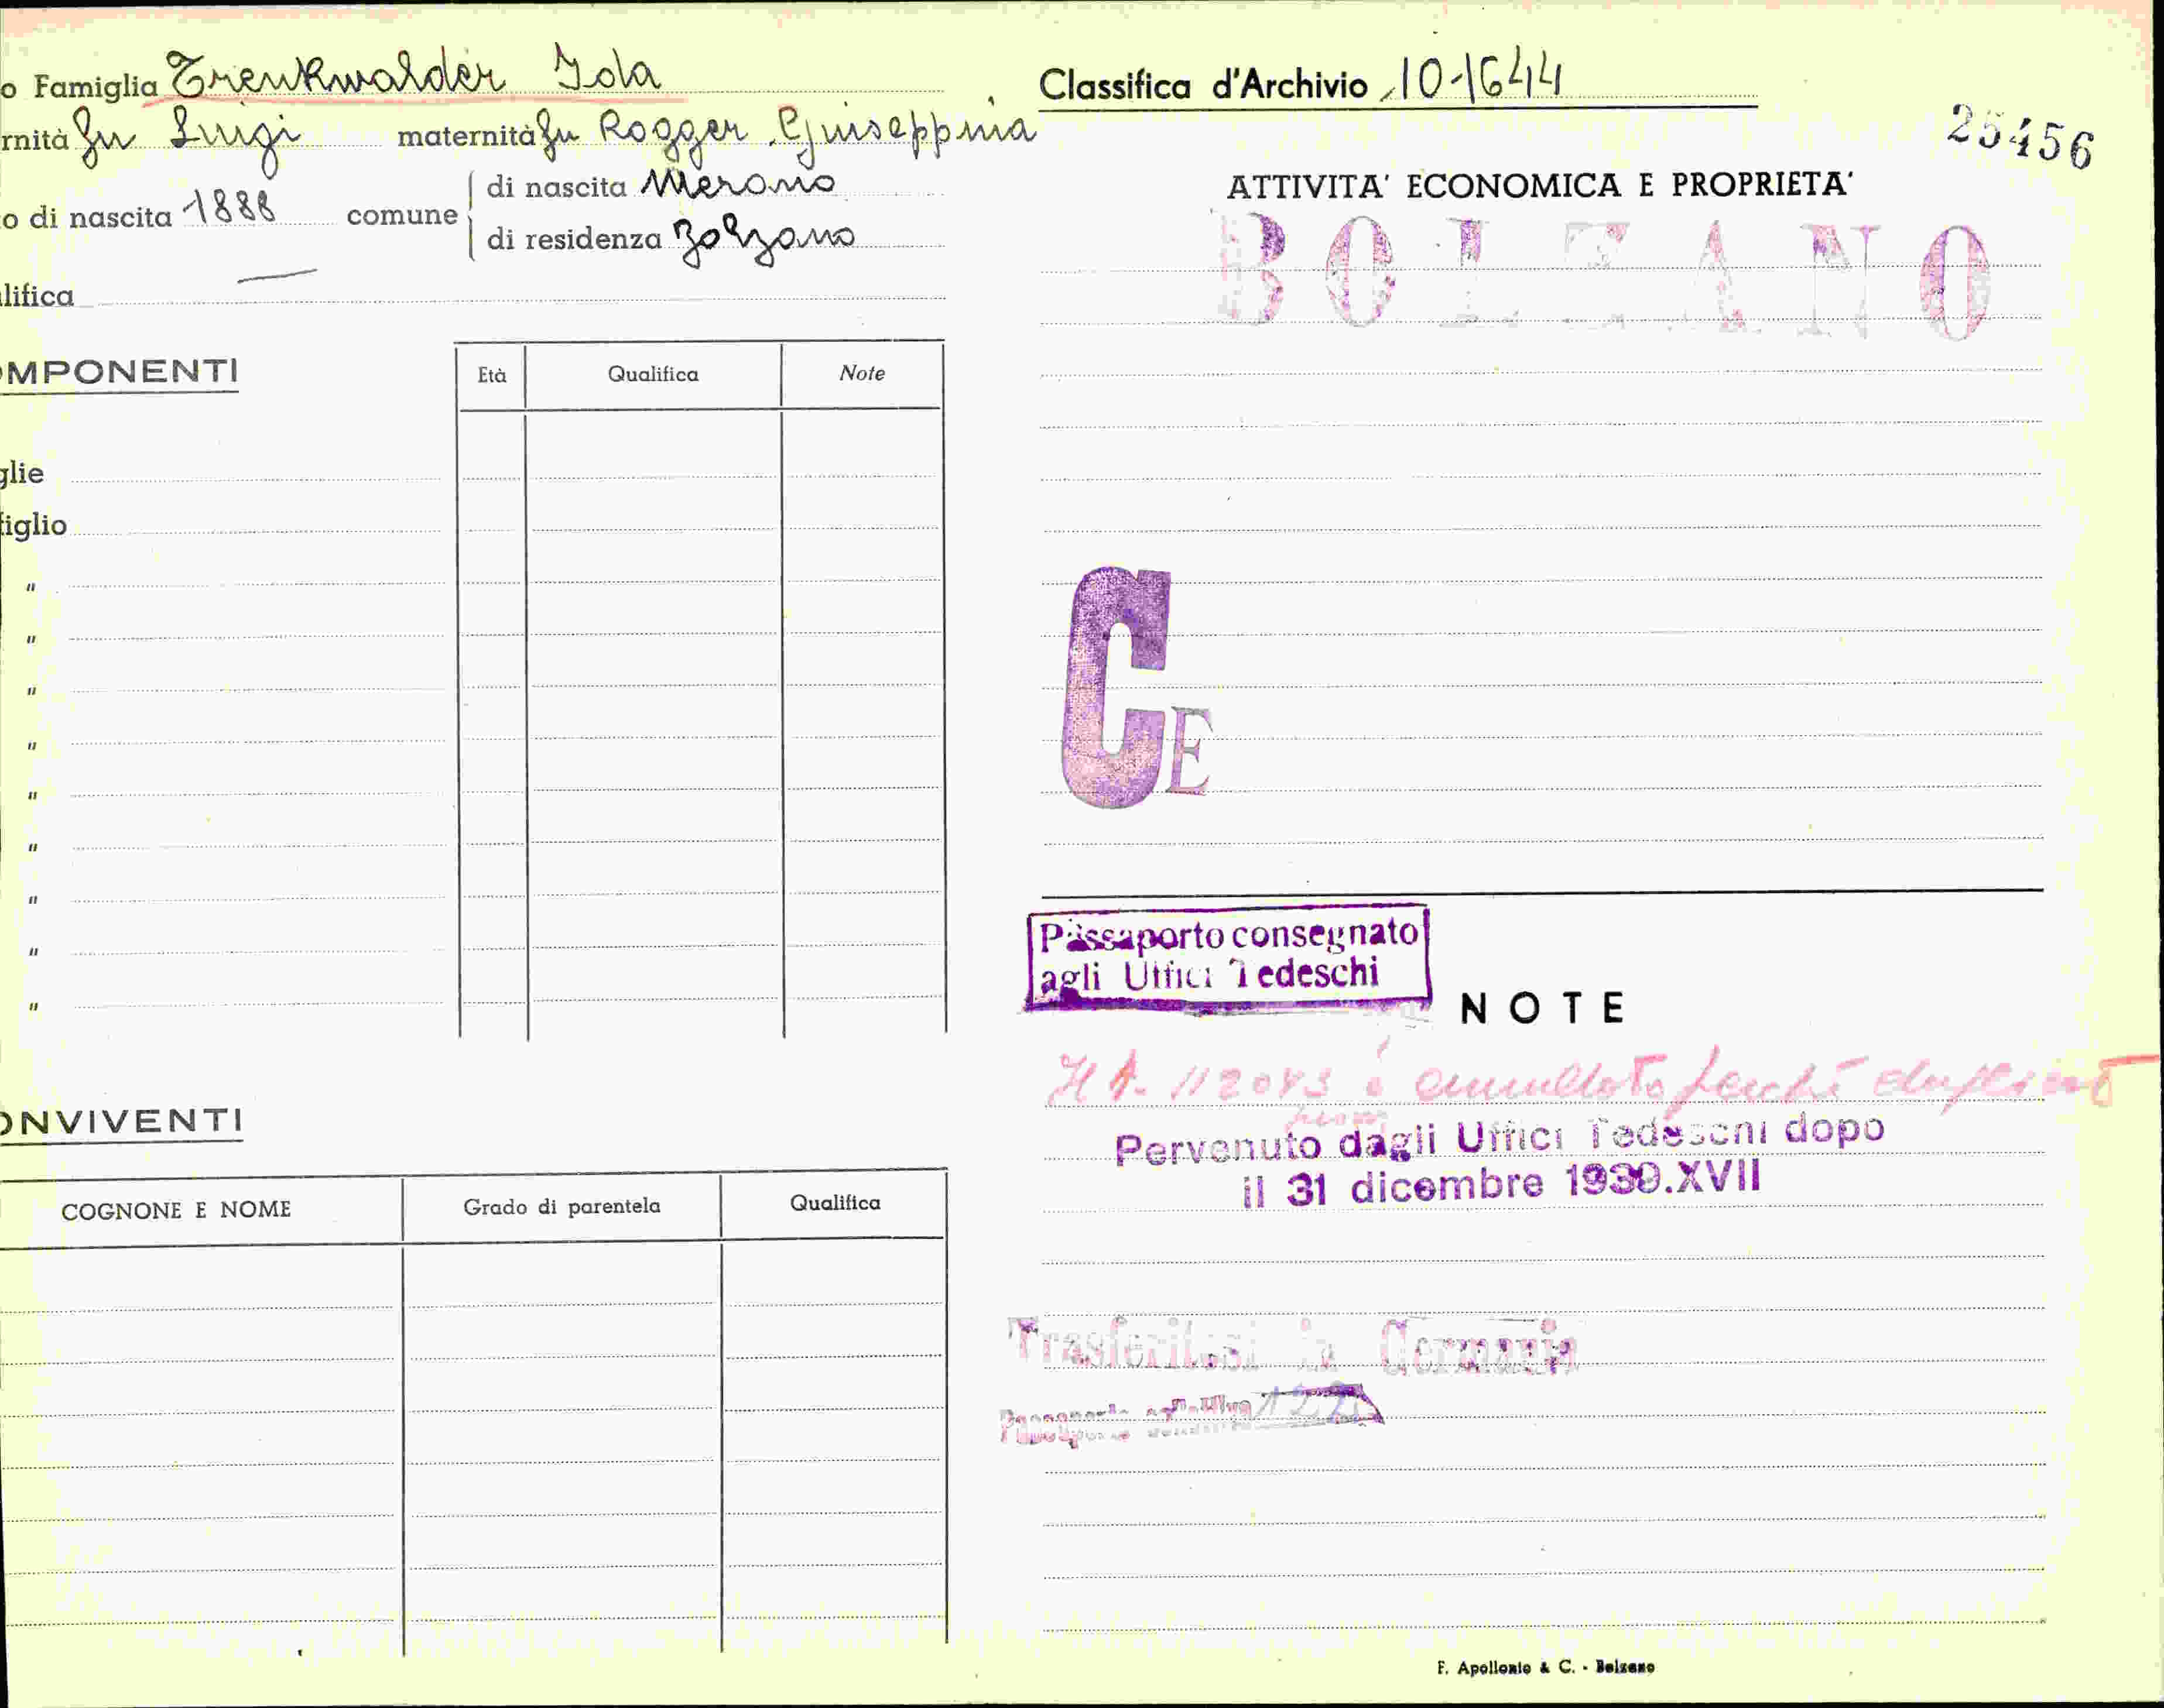 o Famiglia Trenkwalder Ida
rnità fu Luigi maternità fu Rogger Giuseppina
o di nascita 1888 comune di nascita Merano
di residenza Bolzano
lifica
OMPONENTI Età Qualifica Note
glie
figlio
"
"
"
"
"
"
"
"
"
ONVIVENTI
COGNONE E NOME Grado di parentela Qualifica
Classifica d'Archivio 10-1644
25456
ATTIVITA' ECONOMICA E PROPRIETA'
BOLZANO
CE
Passaporto consegnato
agli Uffici Tedeschi
NOTE
112043 è annullato perchè
Pervenuto dagli Uffici Tedeschi dopo
il 31 dicembre 1939.XVII
Trasferitosi in Germania
F. Apollonio & C. - Bolzano